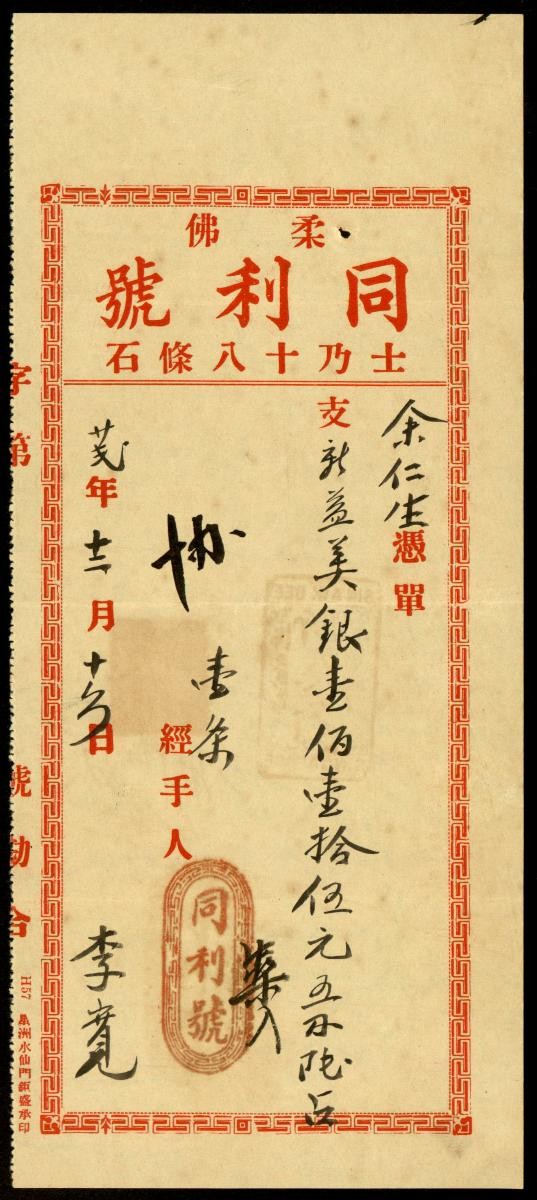 柔佛
同利號
士乃十八條石
余仁生憑單
支新益美銀壹佰壹拾伍元五毛陸占
壹条
經手人
同利號
年十二月十六日
李寬
字第
號勘合
H57 星洲水仙門鉅盛承印